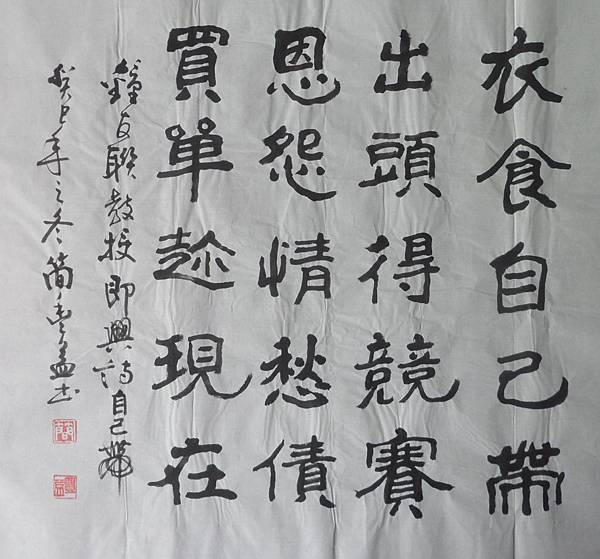 衣食自己帶
出頭得競賽
恩怨情愁債
買單趁現在
鐘友聯教授即興詩自己帶
癸巳年之冬簡孟書